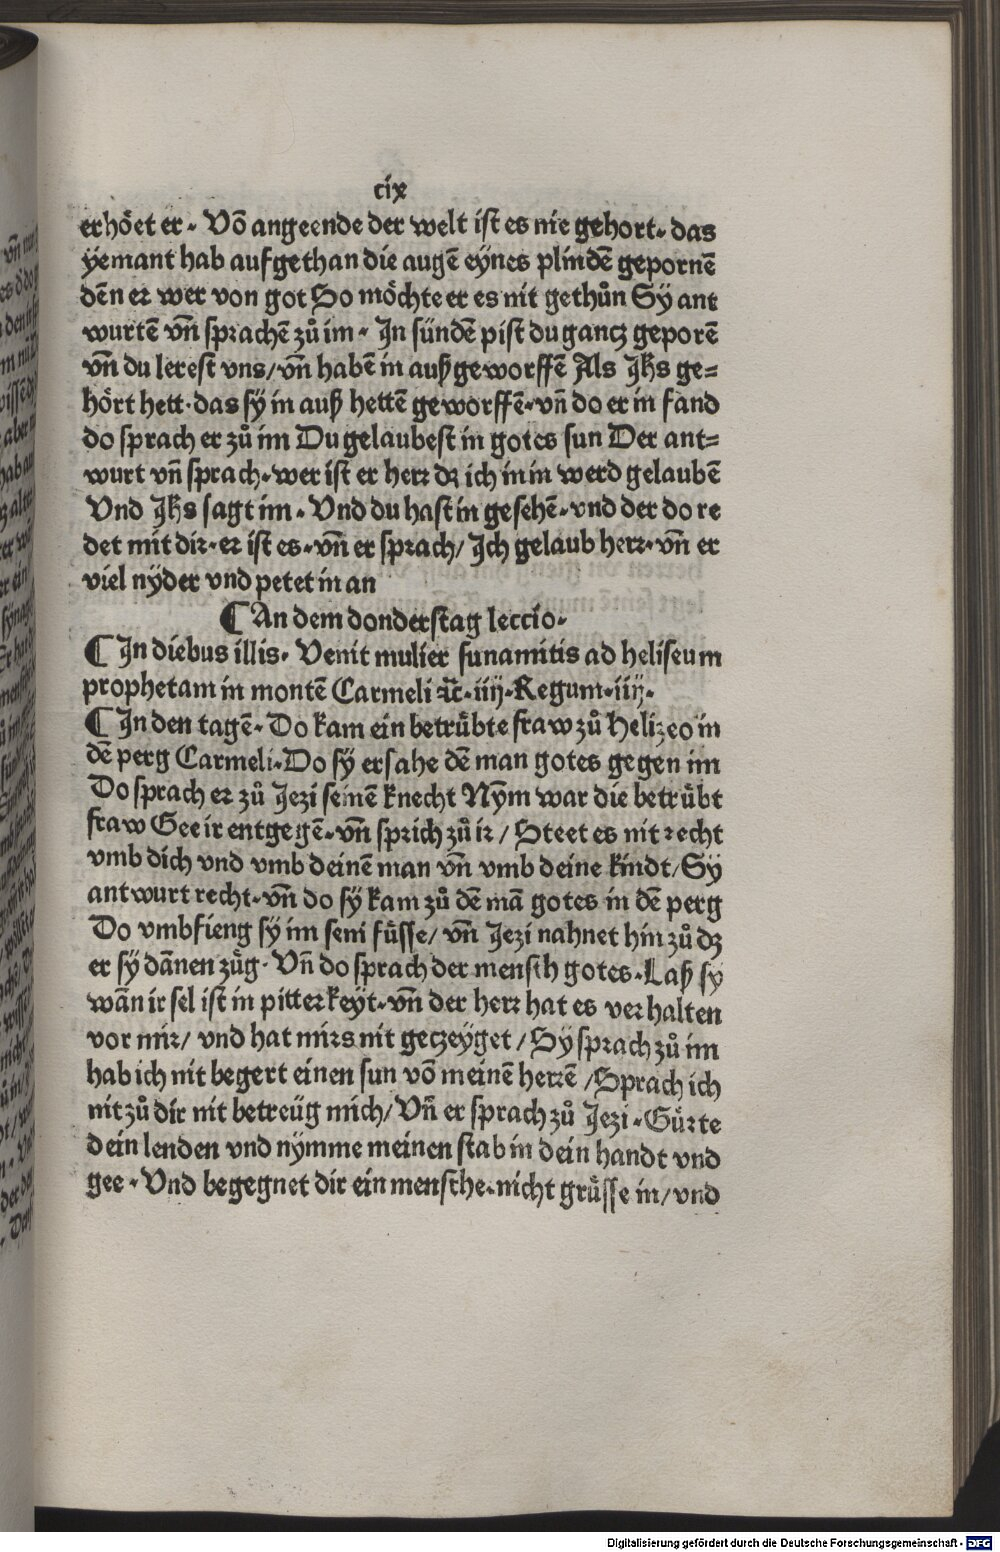 cix
erhöet er. Uõ angeende der welt ist es nie gehort. das
ÿemant hab aufgethan die augẽ eÿnes plindẽ gepornẽ
dẽn er wer von got So möchte er es nit gethůn Sÿ ant
wurtẽ vñ sprachẽ zů im. In sündẽ pist du gancz geporẽ
vñ du lerest vns/ vñ habẽ in außgeworffẽ Als Jhs ge=
hört hett. das sÿ in auß hettẽ geworffẽ. vñ do er in fand
do sprach er zů im Du gelaubest in gotes sun Der ant=
wurt vñ sprach. wer ist er herr dz ich in in werd gelaubẽ
Und Jhs sagt im. Und du hast in gesehẽ. vnd der do re
det mit dir. er ist es. vñ er sprach/ Ich gelaub herr. vñ er
viel nÿder vnd petet in an
¶ An dem donderstag leccio.
¶ In diebus illis. Uenit mulier sunamitis ad heliseum
prophetam in montẽ Carmeli ⁊c̃. iiij. Regum. iiij.
¶ In den tagẽ. Do kam ein betrůbte fraw zů Helizeo in
dẽ perg Carmeli. Do sÿ ersahe dẽ man gotes gegen im
Do sprach er zů Jezi seinẽ knecht Nÿm war die betrůbt
fraw Gee ir entgegẽ. vñ sprich zů ir / Steet es nit recht
vmb dich vnd vmb deinẽ man vñ vmb deine kindt/ Sÿ
antwurt recht. vñ do sÿ kam zů dẽ mã gotes in dẽ perg
Do vmbfieng sÿ im seni fůsse/ vñ Jezi nahnet hin zů dz
er sÿ dãnen zůg. Uñ do sprach der mensch gotes. Laß sy
wãn ir sel ist in pitterkeÿt. vñ der herr hat es verhalten
vor mir/ vnd hat mirs nit geczeÿget / Sÿ sprach zů im
hab ich nit begert einen sun võ meinẽ herrẽ / Sprach ich
nit zů dir nit betreüg mich/ Uñ er sprach zů Jezi. Gürte
dein lenden vnd nÿmme meinen stab in dein handt vnd
gee. Und begegnet dir ein mensche. nicht grůsse in/ vnd
Digitalisierung gefördert durch die Deutsche Forschungsgemeinschaft - DFG